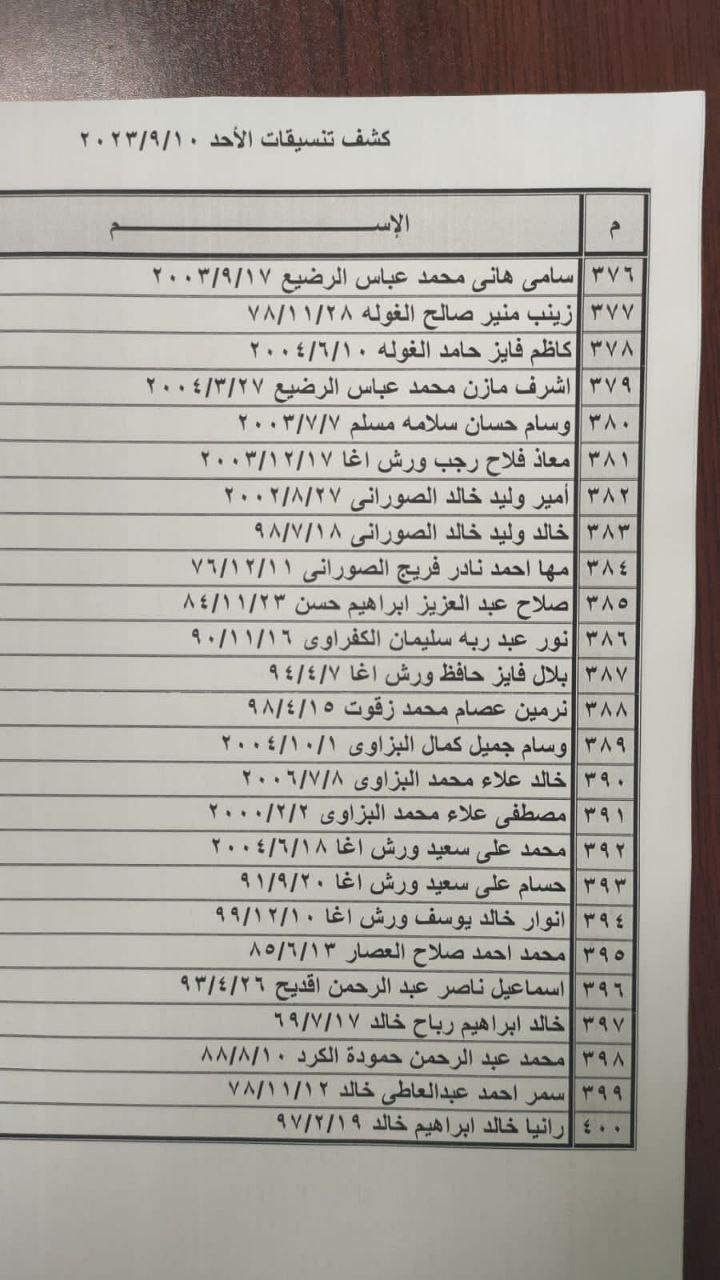 كشف تنسيقات الأحد ٢٠٢٣/٩/١٠
م الإســـــــــم
٣٧٦ سامى هانى محمد عباس الرضيع ٢٠٠٣/٩/١٧
٣٧٧ زينب منير صالح الغوله ٧٨/١١/٢٨
٣٧٨ كاظم فايز حامد الغوله ٢٠٠٤/٦/١٠
٣٧٩ اشرف مازن محمد عباس الرضيع ٢٠٠٤/٣/٢٧
٣٨٠ وسام حسان سلامه مسلم ٢٠٠٣/٧/٧
٣٨١ معاذ فلاح رجب ورش اغا ٢٠٠٣/١٢/١٧
٣٨٢ أمير وليد خالد الصورانى ٢٠٠٢/٨/٢٧
٣٨٣ خالد وليد خالد الصورانى ٩٨/٧/١٨
٣٨٤ مها احمد نادر فريج الصورانى ٧٦/١٢/١١
٣٨٥ صلاح عبد العزيز ابراهيم حسن ٨٤/١١/٢٣
٣٨٦ نور عبد ربه سليمان الكفراوى ٩٠/١١/١٦
٣٨٧ بلال فايز حافظ ورش اغا ٩٤/٤/٧
٣٨٨ نرمين عصام محمد زقوت ٩٨/٤/١٥
٣٨٩ وسام جميل كمال البزاوى ٢٠٠٤/١٠/١
٣٩٠ خالد علاء محمد البزاوى ٢٠٠٦/٧/٨
٣٩١ مصطفى علاء محمد البزاوى ٢٠٠٠/٢/٢
٣٩٢ محمد على سعيد ورش اغا ٢٠٠٤/٦/١٨
٣٩٣ حسام على سعيد ورش اغا ٩١/٩/٢٠
٣٩٤ انوار خالد يوسف ورش اغا ٩٩/١٢/١٠
٣٩٥ محمد احمد صلاح العصار ٨٥/٦/١٣
٣٩٦ اسماعيل ناصر عبد الرحمن اقديح ٩٣/٤/٢٦
٣٩٧ خالد ابراهيم رباح خالد ٦٩/٧/١٧
٣٩٨ محمد عبد الرحمن حمودة الكرد ٨٨/٨/١٠
٣٩٩ سمر احمد عبدالعاطى خالد ٧٨/١١/١٢
٤٠٠ رانيا خالد ابراهيم خالد ٩٧/٢/١٩